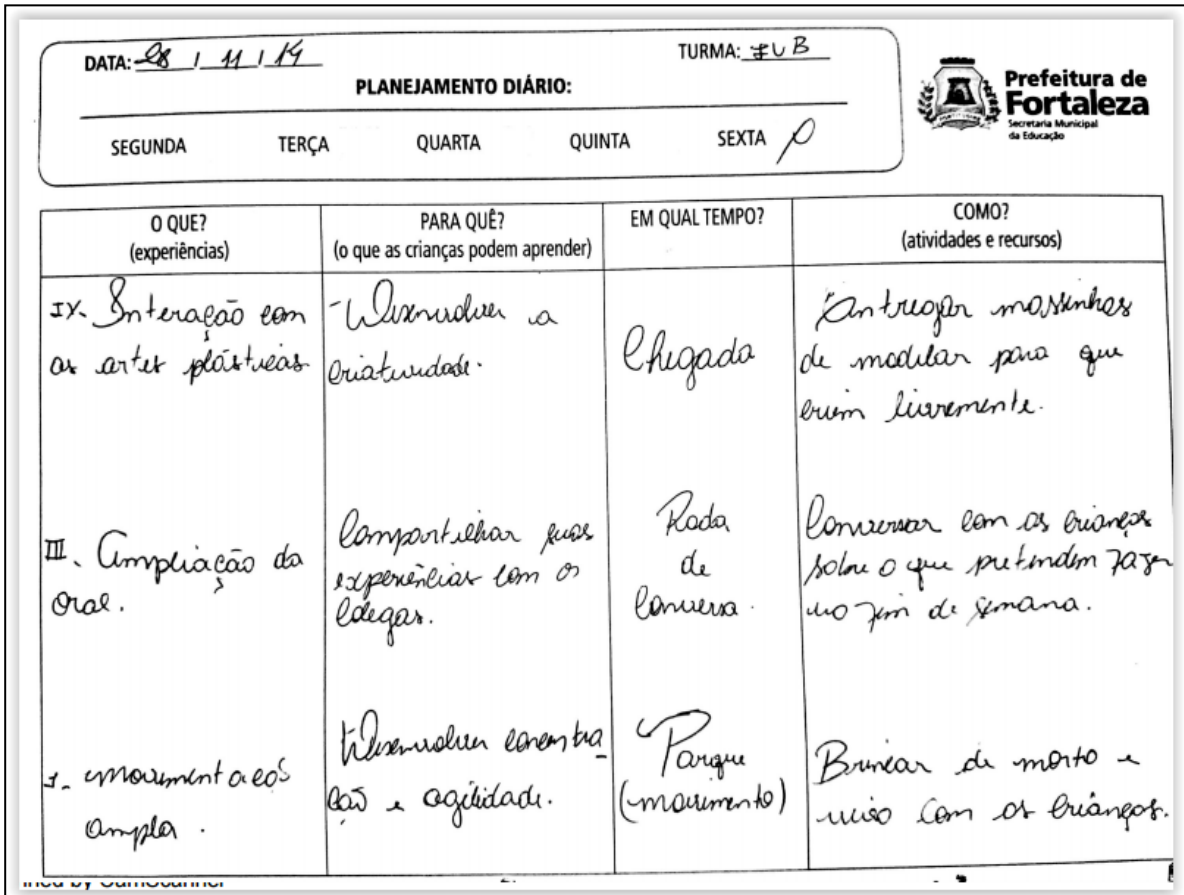 DATA: 28 / 11 / 14
TURMA: IV B
PLANEJAMENTO DIÁRIO:
SEGUNDA TERÇA QUARTA QUINTA SEXTA
Prefeitura de
Fortaleza
Secretaria Municipal
da Educação
O QUE?
(experiências)
PARA QUÊ?
(o que as crianças podem aprender)
EM QUAL TEMPO?
COMO?
(atividades e recursos)
IV. Interação com
as artes plásticas
- Desenvolver a
criatividade.
Chegada
Entregar massinhas
de modelar para que
criem livremente.
III. Ampliação da
oral.
Compartilhar suas
experiências com os
colegas.
Roda
de
Conversa.
Conversar com as crianças
sobre o que pretendem fazer
no fim de semana.
I. movimentação
ampla.
Desenvolver concentra
ção e agilidade.
Parque
(movimento)
Brincar de morto e
vivo com as crianças.